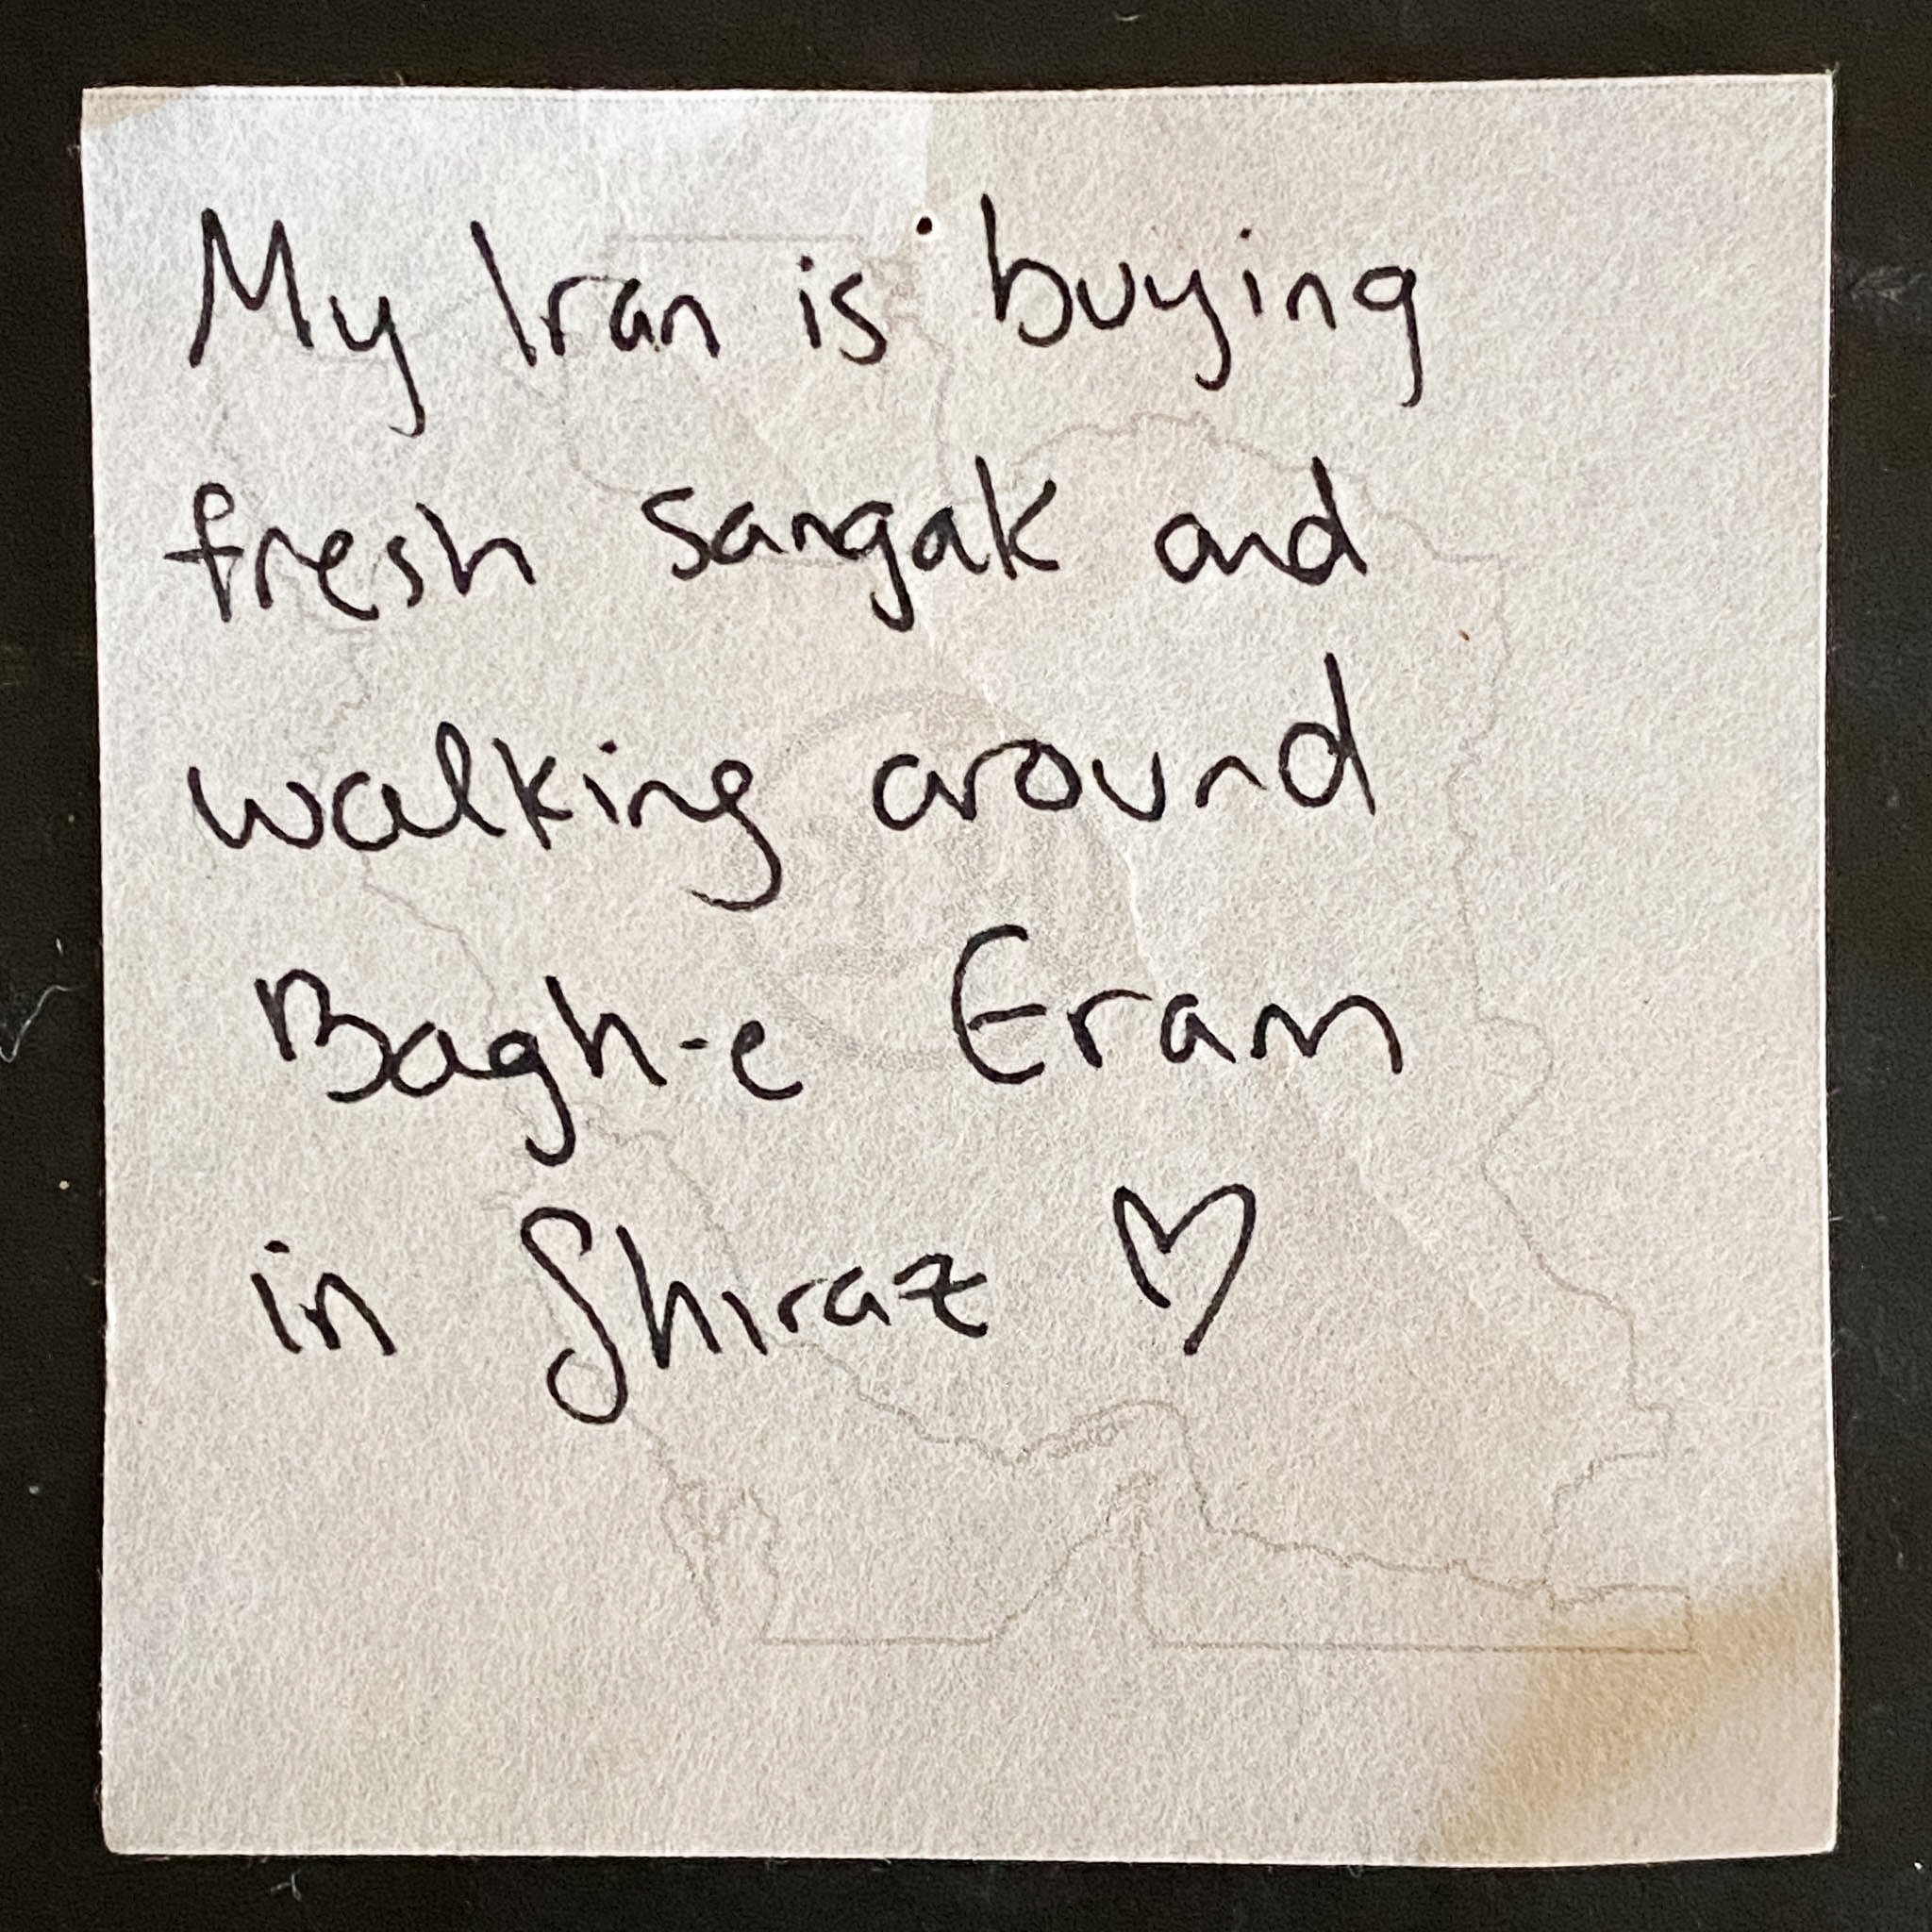 My Iran is buying
fresh sangak and
walking around
Bagh-e Eram
in Shiraz ♡